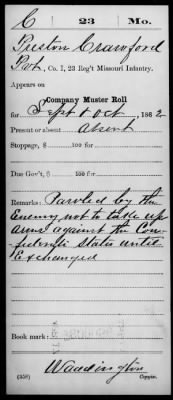 C 23 Mo.
Preston Crawford
Pvt, Co. I, 23 Reg't Missouri Infantry.
Appears on
Company Muster Roll
for Sept & Oct, 1862
Present or absent Absent
Stoppage, $ 100 for
Due Gov't, $ 100 for
Remarks: Paroled by the
Enemy not to take up
arms against the Con-
federate States until
Exchanged
Book mark:
Waddington
(358) Copyist.